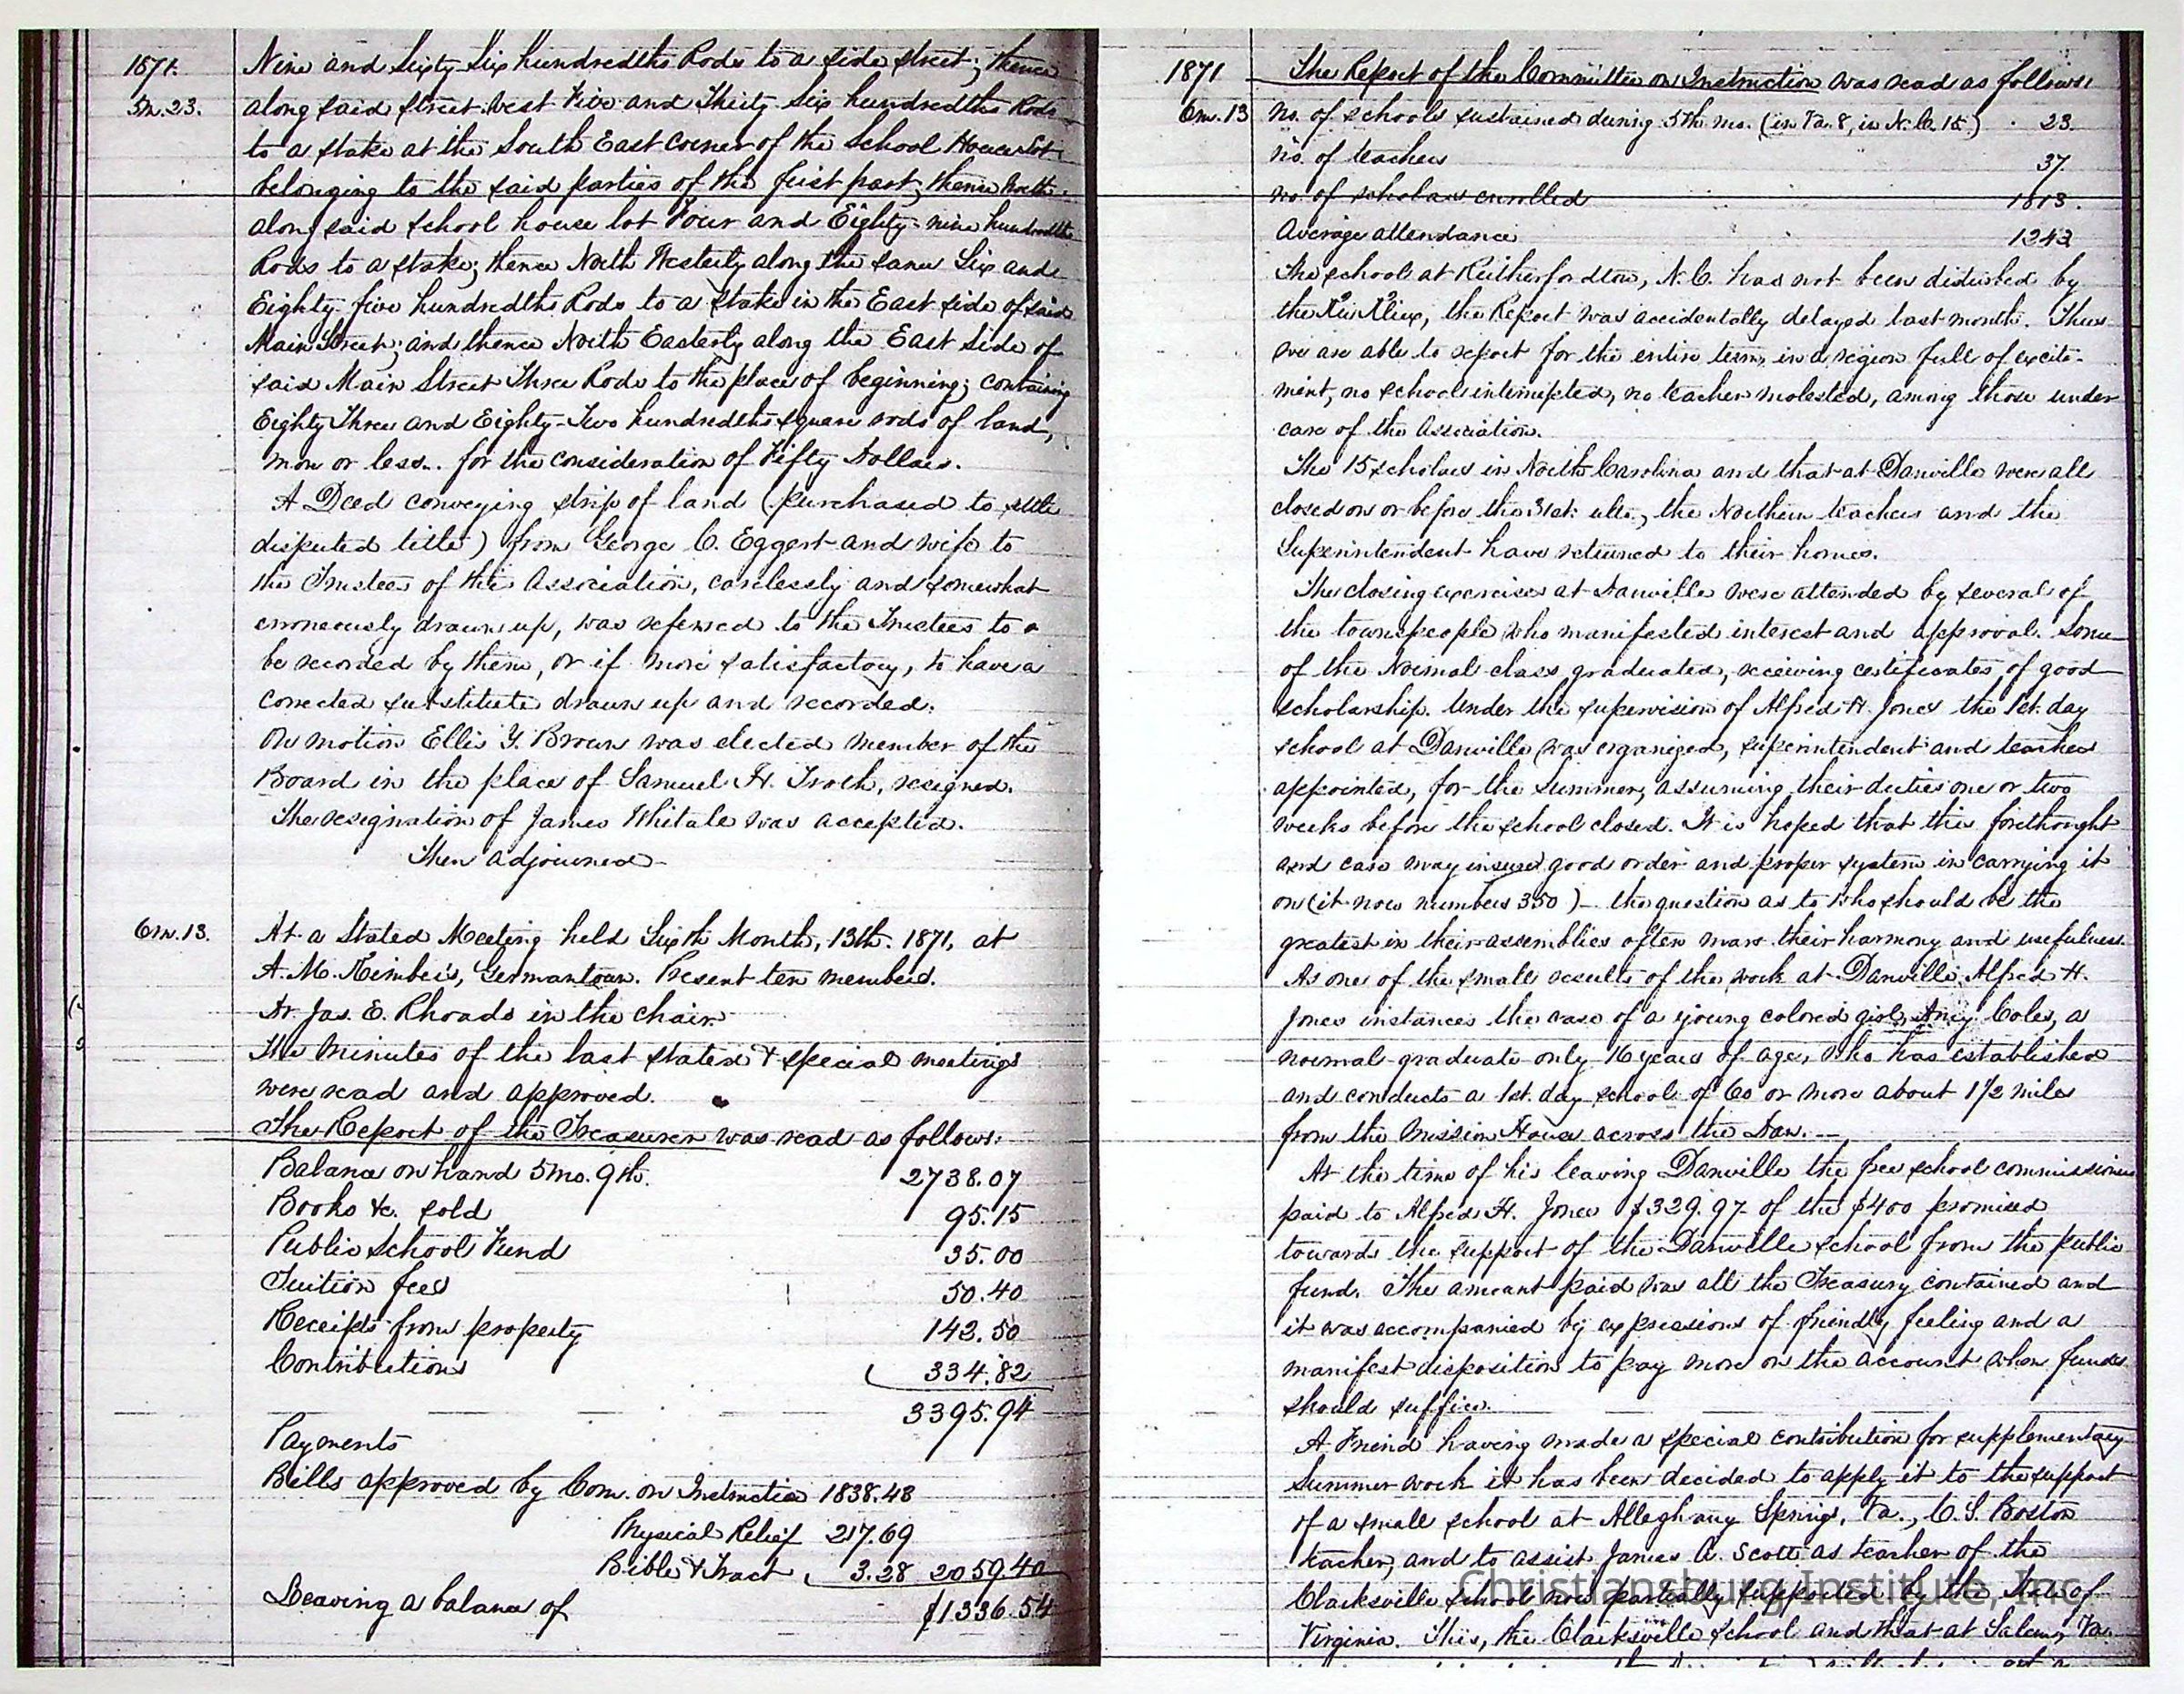 1871.
5m.23.
Nine and Sixty Six hundredths Rods to a side street; thence
along said street West Five and Thirty Six hundredths Rods
to a stake at the South East corner of the School House Lot
belonging to the said parties of the first part; thence North
along said school house lot Four and Eighty-nine hundredths
Rods to a stake; thence North Westerly along the same Six and
Eighty five hundredths Rods to a stake in the East side of said
Main Street; and thence North Easterly along the East side of
said Main Street Three Rods to the place of beginning; containing
Eighty Three and Eighty-Two hundredths square rods of land,
more or less.. for the consideration of Fifty Dollars.
A Deed conveying strip of land (purchased to settle
disputed title) from George C. Eggert and wife to
the Trustees of the Association, carelessly and somewhat
erroneously drawn up, was referred to the Trustees to
be recorded by them, or if more satisfactory, to have a
corrected substitute drawn up and recorded.
On motion Ellis Y. Brown was elected member of the
Board in the place of Samuel H. Troth, resigned.
The resignation of James Whitall was accepted.
Then adjourned-
6m.13.
At a Stated Meeting held Sixth Month, 13th. 1871, at
A. M. Kimber's, Germantown. Present ten members.
Dr. Jas. E. Rhoads in the chair.
The Minutes of the last stated & special meetings
were read and approved.
The Report of the Treasurer was read as follows:
Balance on hand 5mo. 9th. 2738.07
Books &c. sold 95.15
Public School Fund 35.00
Tuition fees 50.40
Receipts from property 142.50
Contributions 334.82
3395.94
Payments
Bills approved by Com. on Instruction 1838.43
Physical Relief 217.69
Bible & Tract 3.28 2059.40
Leaving a balance of $1336.54
1871
6m.13
The Report of the Committee on Instruction was read as follows:
No. of schools sustained during 5th mo. (in Va. 8, in N.C. 15) 23.
No. of teachers 37.
No. of scholars enrolled 1813.
Average attendance 1242
The school at Rutherfordton, N.C. has not been disturbed by
the Ku Klux, the Report was accidentally delayed last month. Thus
we are able to report for the entire term, in a region full of excite-
ment, no school interrupted, no teacher molested, among those under
care of the Association.
The 15 scholars in North Carolina and that at Danville were all
closed on or before the 31st. ulto., the Northern teachers and the
Superintendent have returned to their homes.
The closing exercises at Danville were attended by several of
the townspeople who manifested interest and approval. Some
of the Normal class graduated, receiving certificates of good
scholarship. Under the supervision of Alfred H. Jones the 1st. day
school at Danville was organized, superintendent and teachers
appointed, for the Summer, assuming their duties one or two
weeks before the school closed. It is hoped that this forethought
and care may insure good order and proper system in carrying it
on (it now numbers 350)- the question as to who should be the
greatest in their assemblies often mars their harmony and usefulness.
As one of the small results of the work at Danville, Alfred H.
Jones instances the case of a young colored girl, Amy Coles, a
normal graduate only 16 years of age, who has established
and conducts a 1st. day school of 60 or more about 1 1/2 miles
from the Mission House across the Dan.—
At the time of his leaving Danville the free school commissioners
paid to Alfred H. Jones $329.97 of the $400 promised
towards the support of the Danville school from the public
fund. The amount paid was all the Treasury contained and
it was accompanied by expressions of friendly feeling and a
manifest disposition to pay more on the account when funds
should suffice.
A Friend having made a special contribution for supplementary
Summer work it has been decided to apply it to the support
of a small school at Alleghany Springs, Va., C. S. Boston
teacher, and to assist James A. Scott as teacher of the
Clarksville school now partially supported by the State of
Virginia. This, the Clarksville school and that at Salem, Va.
Christiansburg Institute, Inc.